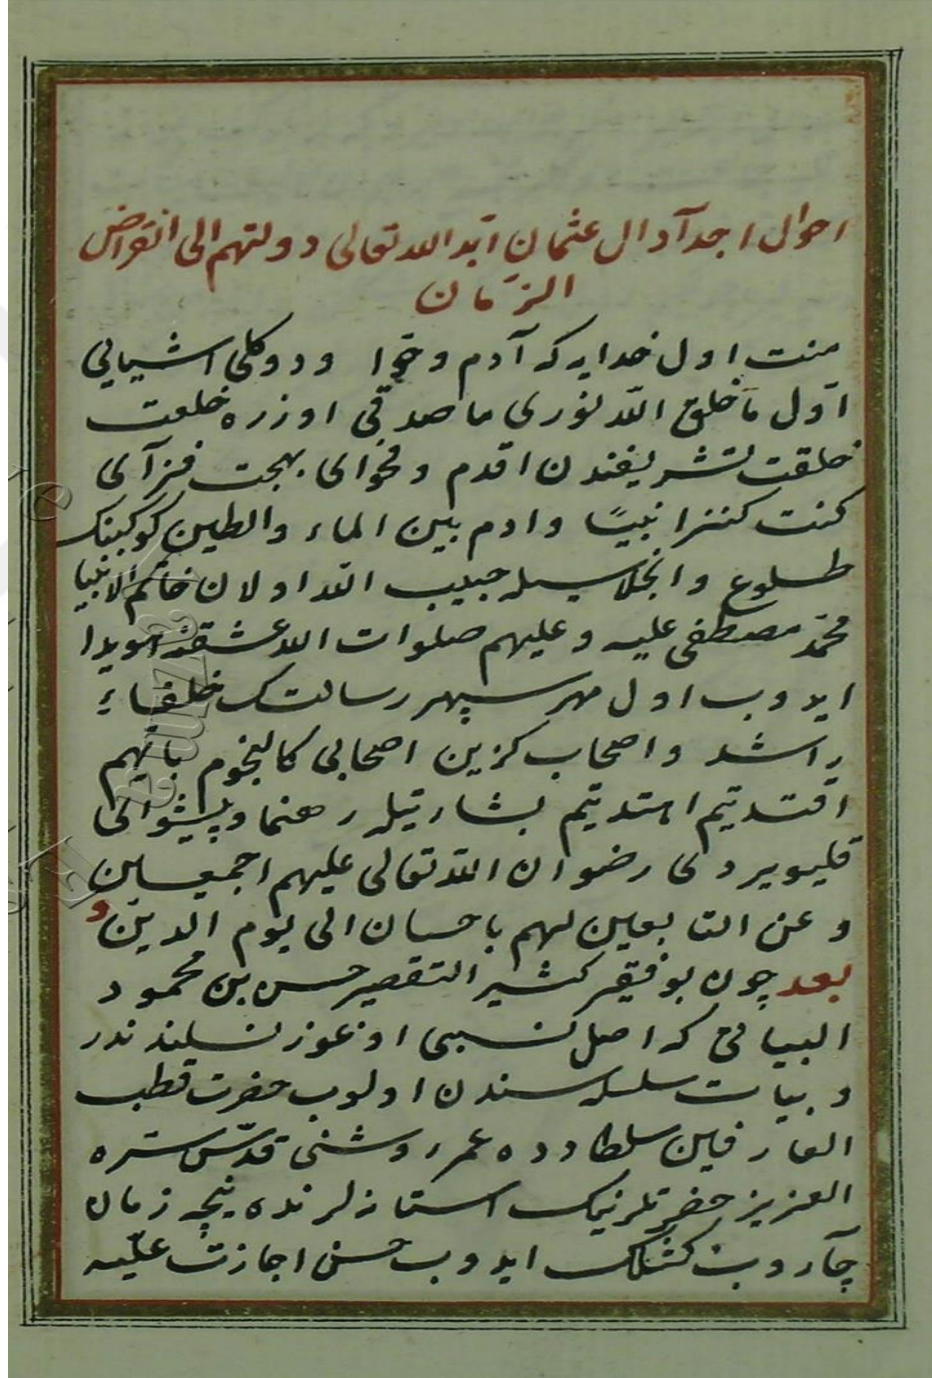 احوال اجداد آل عثمان ابد الله تعالی دولتهم الی انقراض
الزمان
منت اول خدایه که آدم و حوا و دو کلی اشیایی
اول ما خلق الله نوری ما صدقی اوزره خلعت
خلقت تشریفندن اقدم و فحوای بهجت فزآی
کنت کنزا نبیًا و ادم بین الماء و الطین کوکبنک
طلوع و انجلاسیله حبیب الله اولان خاتم الانبیا
محمد مصطفی علیه و علیهم صلوات الله عشقنه هویدا
ایدوب اول مهر سپهر رسالتک خلفاء
راشد و اصحاب کزین اصحابی کالنجوم بایهم
اقتدیتم اهتدیتم بشارتیله رهنما و پیشوای
قلیویردی رضوان الله تعالی علیهم اجمعین
و عن التابعین لهم باحسان الی یوم الدین و
بعد چون بو فقیر کثیر التقصیر حسن بن محمود
البیاتی که اصل نسبی اوغوز نسلیندندر
و بیات سلسله سندن اولوب حضرت قطب
العارفین سلطان دده عمر روشنی قدس سره
العزیز حضرتلرینک استانه لرنده نیچه زمان
چاروب کشلک ایدوب حسن اجازت علیه